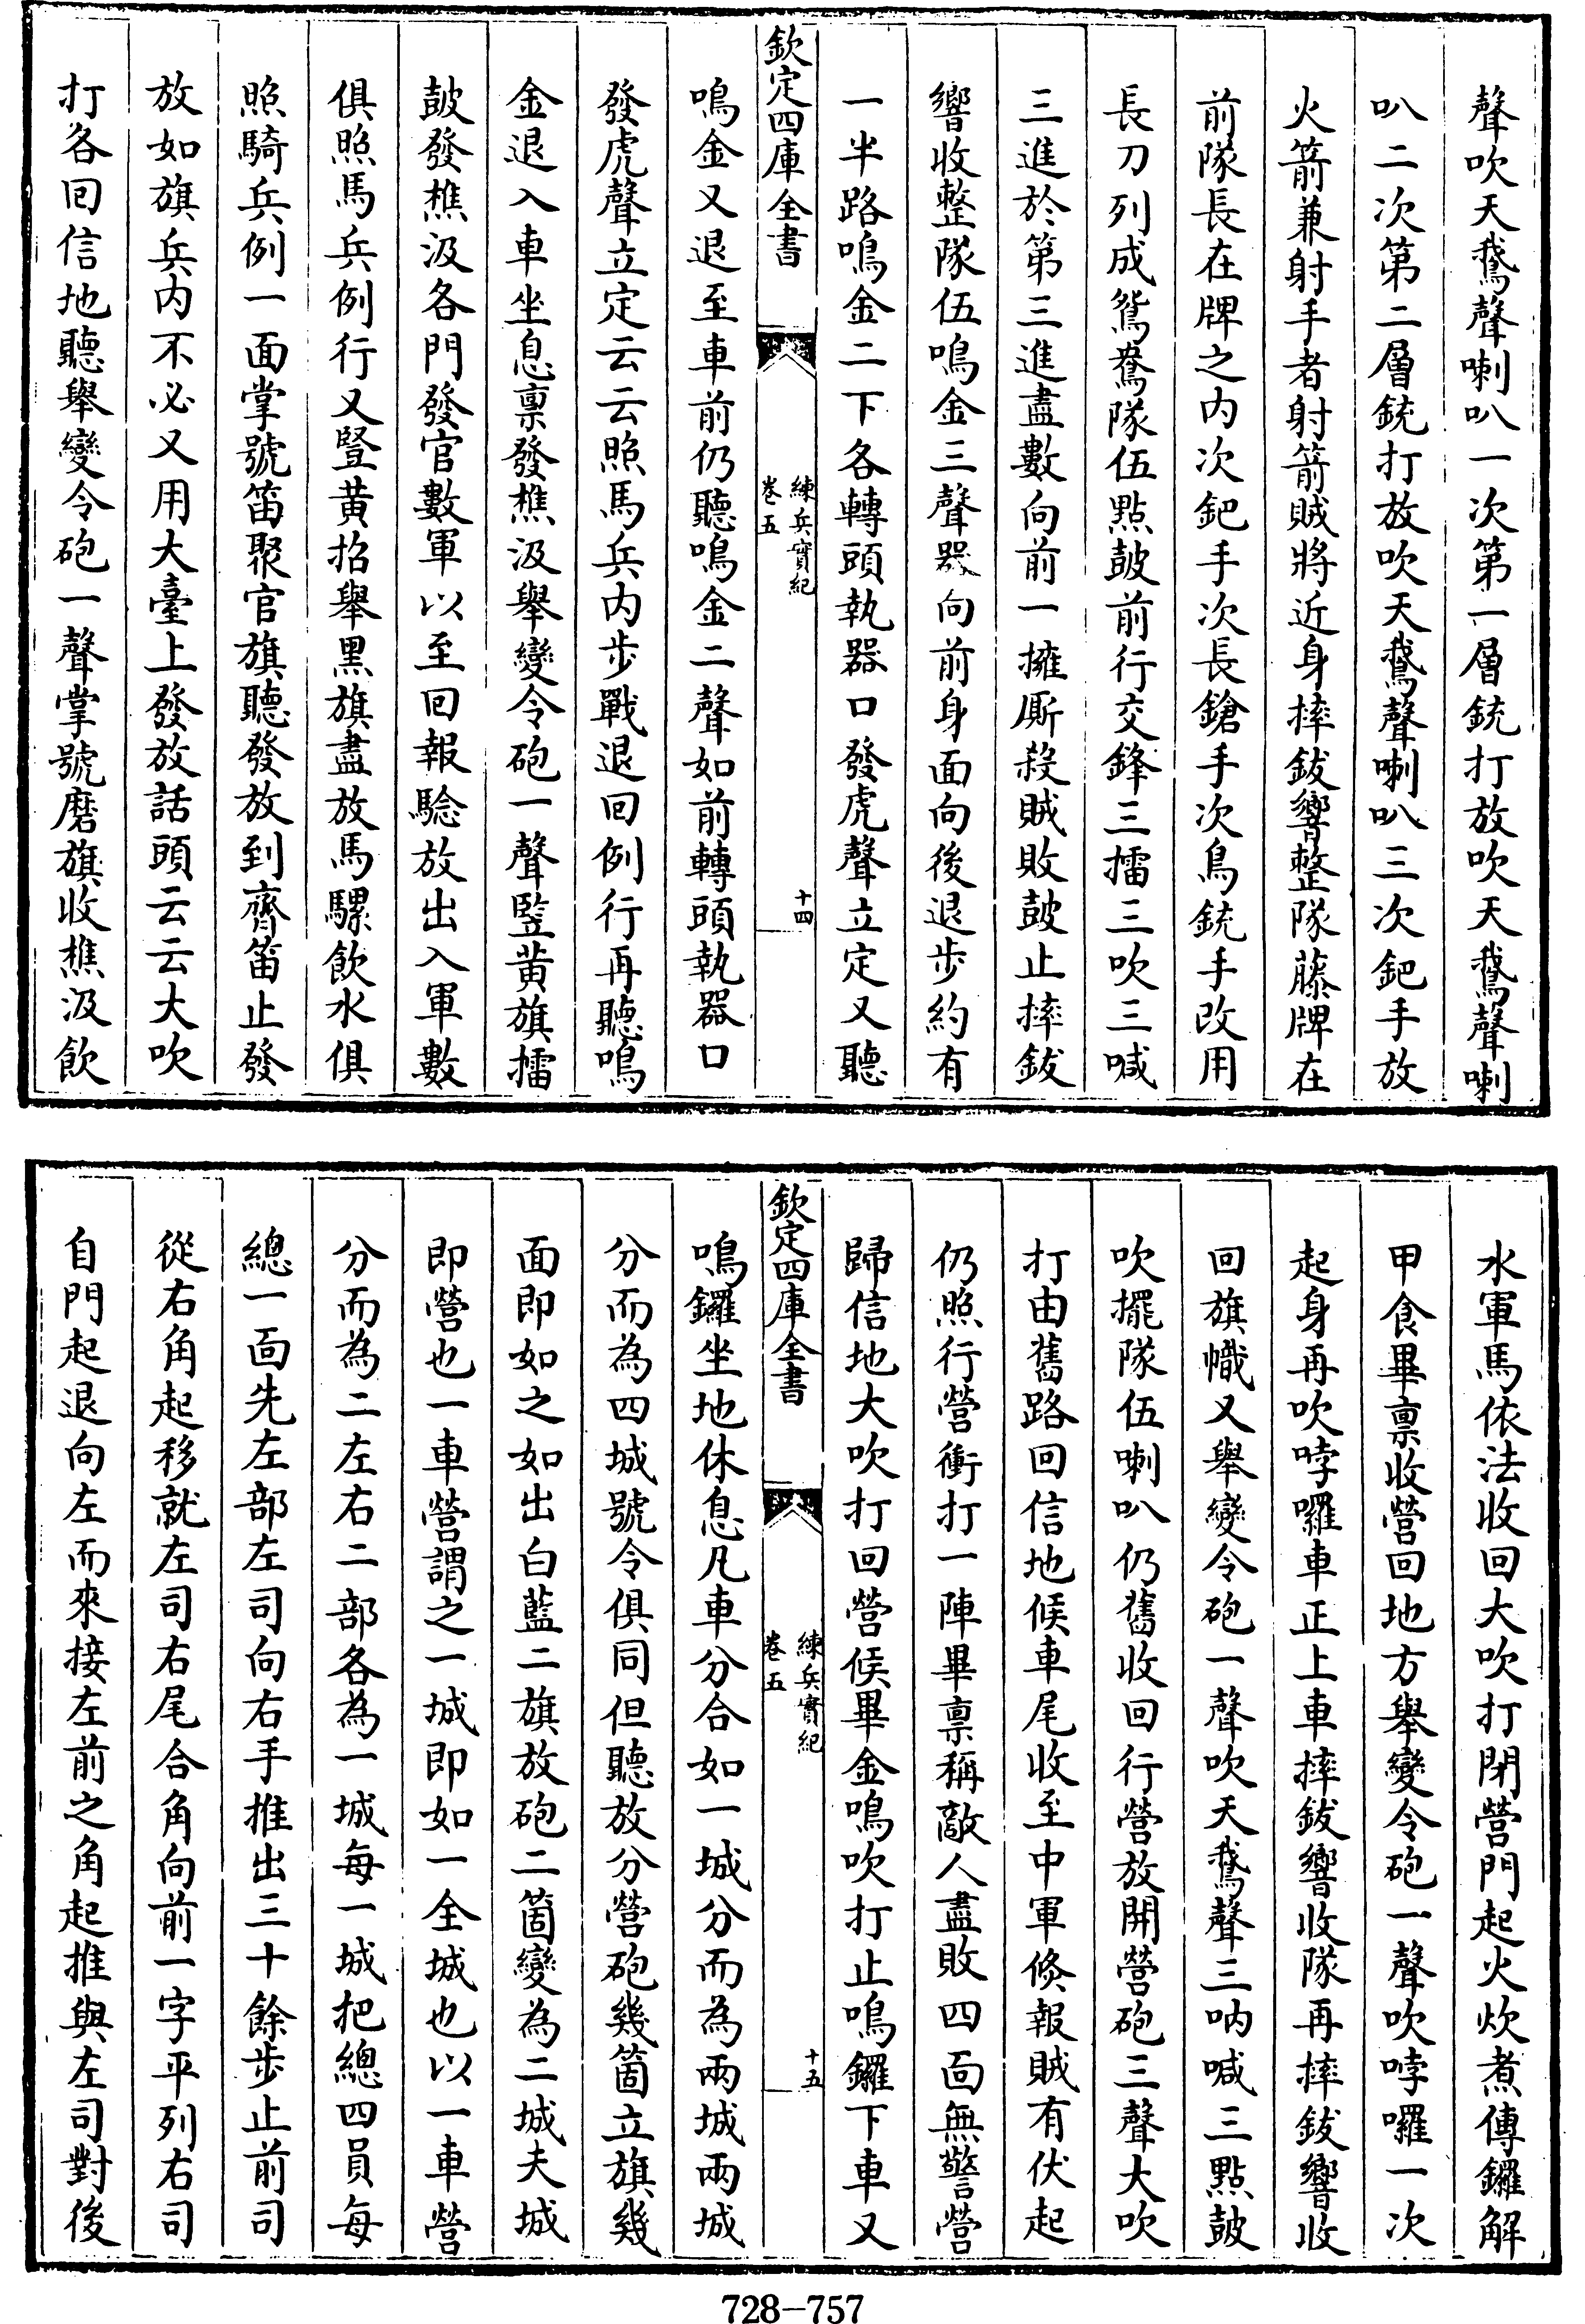 聲吹天鵞聲喇叭一次第一層銃打放吹天鵞聲喇
叭二次第二層銃打放吹天鵞聲喇叭三次鈀手放
火箭兼射手者射箭賊將近身摔鈸響整隊藤牌在
前隊長在牌之内次鈀手次長鎗手次鳥銃手改用
長刀列成鴛鴦隊伍點皷前行交鋒三擂三吹三喊
三進於第三進盡數向前一擁厮殺賊敗皷止摔鈸
響收整隊伍鳴金三聲器向前身面向後退步約有
一半路鳴金二下各轉頭執器口發虎聲立定又聽
欽定四庫全書
練兵實紀
卷五
十四
鳴金又退至車前仍聽鳴金二聲如前轉頭執器口
發虎聲立定云云照馬兵内步戰退回例行再聽鳴
金退入車坐息禀發樵汲舉變令砲一聲竪黃旗擂
皷發樵汲各門發官數軍以至回報驗放出入軍數
俱照馬兵例行又竪黃招舉黑旗盡放馬騾飲水俱
照騎兵例一面掌號笛聚官旗聽發放到齊笛止發
放如旗兵内不必又用大臺上發放話頭云云大吹
打各回信地聽舉變令砲一聲掌號磨旗收樵汲飲
水軍馬依法收回大吹打閉營門起火炊煮傳鑼解
甲食畢禀收營回地方舉變令砲一聲吹哱囉一次
起身再吹哱囉車正上車摔鈸響收隊再摔鈸響收
回旗幟又舉變令砲一聲吹天鵞聲三吶喊三點皷
吹擺隊伍喇叭仍舊收回行營放開營砲三聲大吹
打由舊路回信地候車尾收至中軍倐報賊有伏起
仍照行營衝打一陣畢禀稱敵人盡敗四面無警營
歸信地大吹打回營候畢金鳴吹打止鳴鑼下車又
欽定四庫全書
練兵實紀
卷五
十五
鳴鑼坐地休息凡車分合如一城分而為兩城兩城
分而為四城號令俱同但聽放分營砲幾箇立旗幾
面即如之如出白藍二旗放砲二箇變為二城夫城
即營也一車營謂之一城即如一全城也以一車營
分而為二左右二部各為一城每一城把總四員每
總一面先左部左司向右手推出三十餘步止前司
從右角起移就左司右尾合角向前一字平列右司
自門起退向左而來接左前之角起推與左司對後
728-757